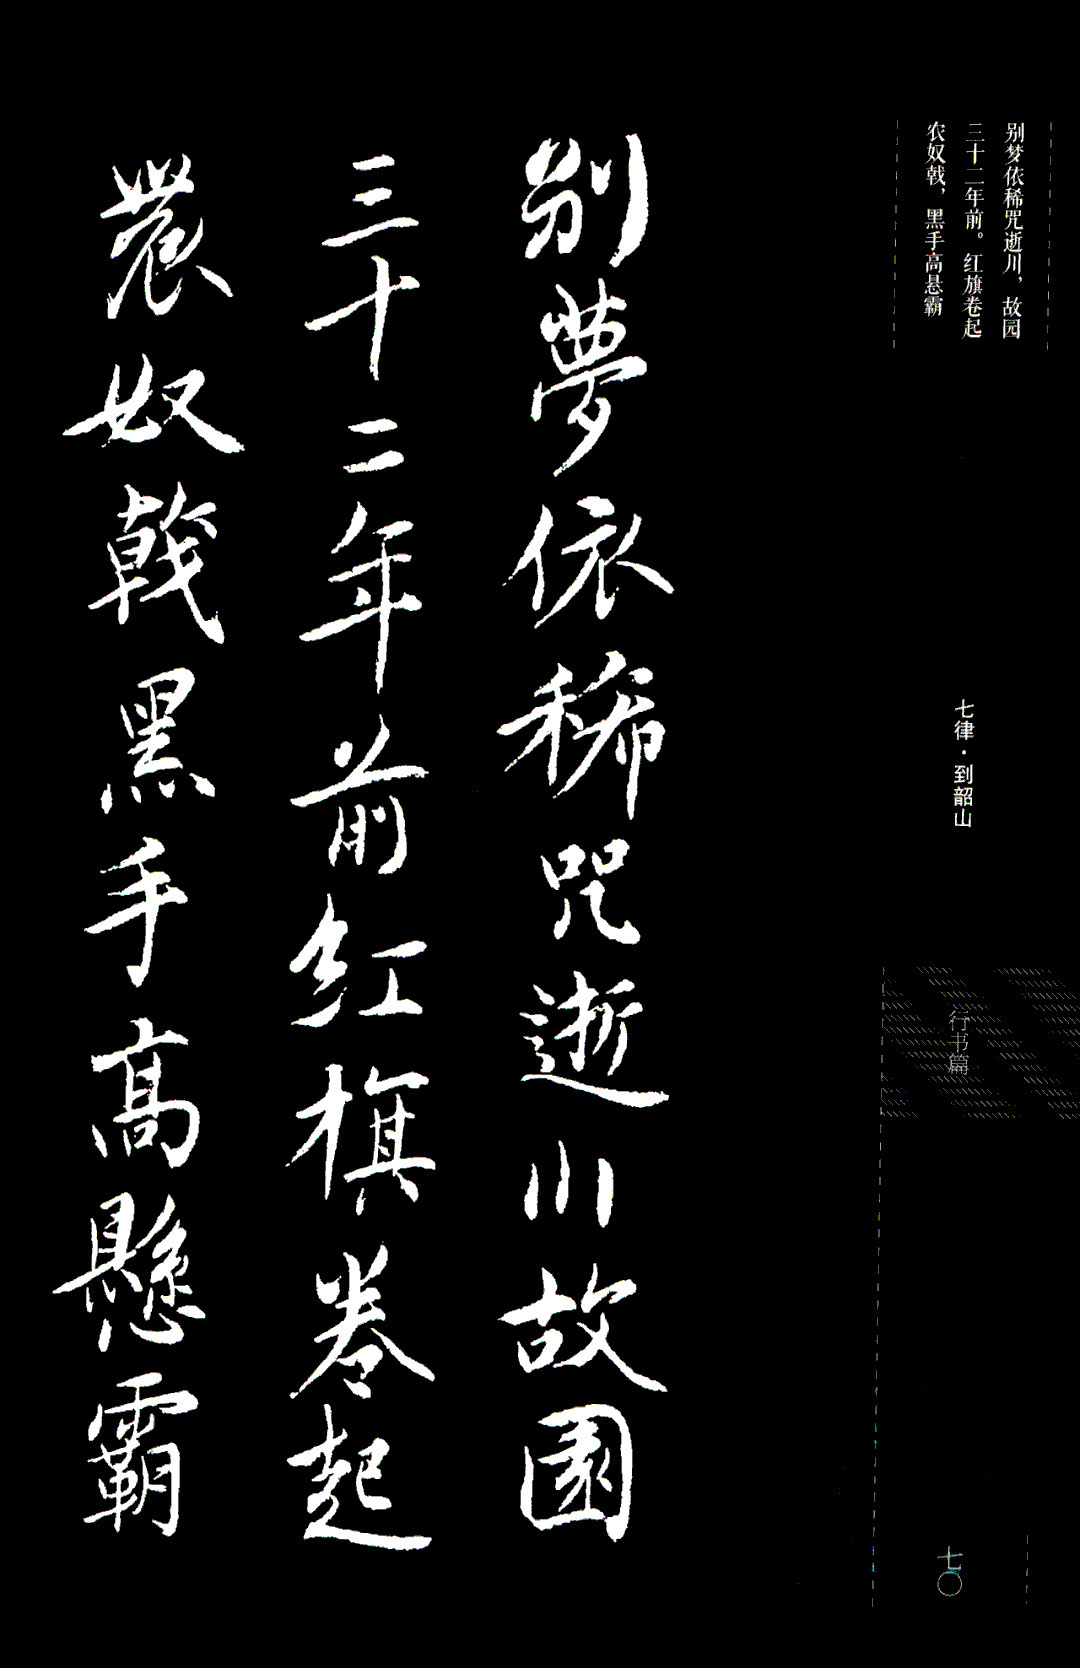 别梦依稀咒逝川，故园
三十二年前。红旗卷起
农奴戟，黑手高悬霸
七律·到韶山
行书篇
七〇
别夢依稀咒逝川故園
三十二年前红旗卷起
農奴戟黑手高懸霸